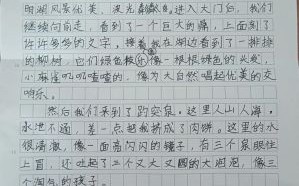 明湖风景优美，波光粼粼。进入大门后，我们
继续向前走，看到了一个巨大的鼎，上面刻了
许许多多的文字。接着我在湖边看到了一排排
的柳树，它们绿色的像一根根绿色的头发，
小麻雀叽叽喳喳的，像为大自然唱起优美的交
响乐。
然后我们来到了趵突泉。这里人山人海，
水泄不通，差一点把我挤成了肉饼。这里的水
很清澈，像一面亮闪闪的镜子，有三个泉眼往
上冒，还吐起了三个又大又圆的大泡泡，像三
个淘气的孩子。